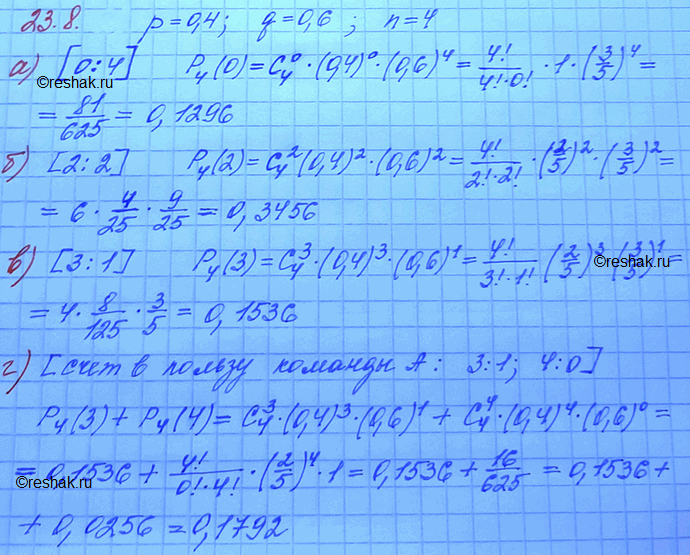 23.8. p=0,4; q=0,6; n=4
а) [0:4] P₄(0)=C₄⁰·(0,4)⁰·(0,6)⁴=4!/(4!·0!)·1·(3/5)⁴=
©reshak.ru
=81/625=0,1296
©reshak.ru
б) [2:2] P₄(2)=C₄²(0,4)²·(0,6)²=4!/(2!·2!)·(2/5)²·(3/5)²=
=6·4/25·9/25=0,3456
в) [3:1] P₄(3)=C₄³·(0,4)³·(0,6)¹=4!/(3!·1!)(2/5)³·(3/5)¹=
©reshak.ru
=4·8/125·3/5=0,1536
г) [счет в пользу команды А: 3:1; 4:0]
P₄(3)+P₄(4)=C₄³·(0,4)³·(0,6)¹+C₄⁴·(0,4)⁴·(0,6)⁰=
=0,1536+4!/(0!·4!)·(2/5)⁴·1=0,1536+16/625=0,1536+
©reshak.ru
©reshak.ru
+0,0256=0,1792